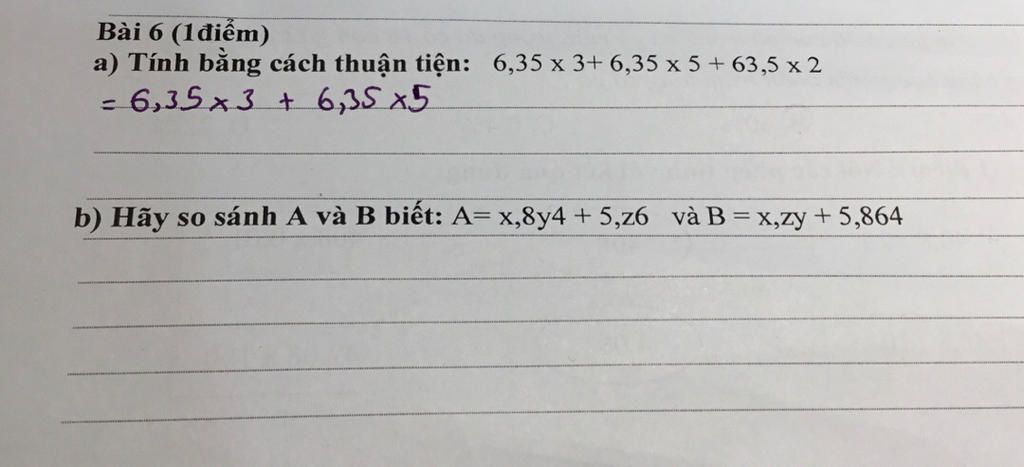 Bài 6 (1điểm)
a) Tính bằng cách thuận tiện: 6,35 x 3+ 6,35 x 5 + 63,5 x 2
= 6,35 x 3 + 6,35 x5
b) Hãy so sánh A và B biết: A= x,8y4 + 5,z6 và B = x,zy + 5,864